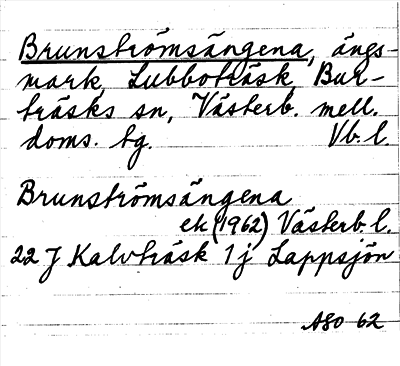 Brunströmsängena, ängs-
mark, Lubboträsk Bur-
träsks sn, Västerb. mell.
doms. tg. Vb. l.
Brunströmsängena
ek (1962) Västerb. l.
22 J Kalvträsk 1 j Lappsjön
ASO 62